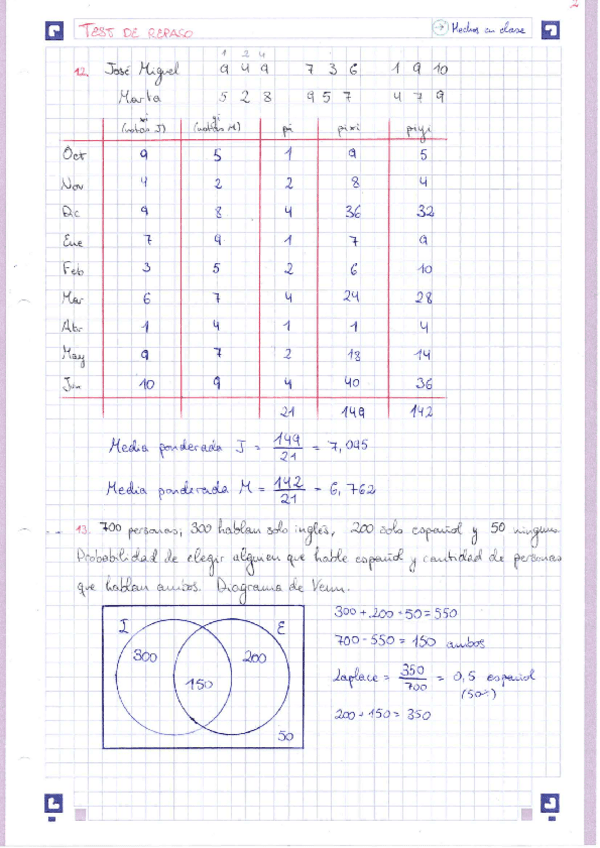 2
TEST DE REPASO → Hechos en clase
1 2 4
12. José Miguel 9 4 9 7 3 6 1 9 10
Marta 5 2 8 9 5 7 4 7 9
xi (notas J) yi (notas M) pi pixi piyi
Oct 9 5 1 9 5
Nov 4 2 2 8 4
Dc 9 8 4 36 32
Ene 7 9 1 7 9
Feb 3 5 2 6 10
Mar 6 7 4 24 28
Abr 1 4 1 1 4
May 9 7 2 18 14
Jun 10 9 4 40 36
21 149 142
Media ponderada J = 149/21 = 7,095
Media ponderada M = 142/21 = 6,762
13. 700 personas, 300 hablan solo inglés, 200 solo español y 50 ninguno.
Probabilidad de elegir alguien que hable español y cantidad de personas
que hablan ambos. Diagrama de Venn.
I E
300 150 200
50
300 + 200 + 50 = 550
700 - 550 = 150 ambos
Laplace = 350/700 = 0,5 español
(50%)
200 + 150 = 350